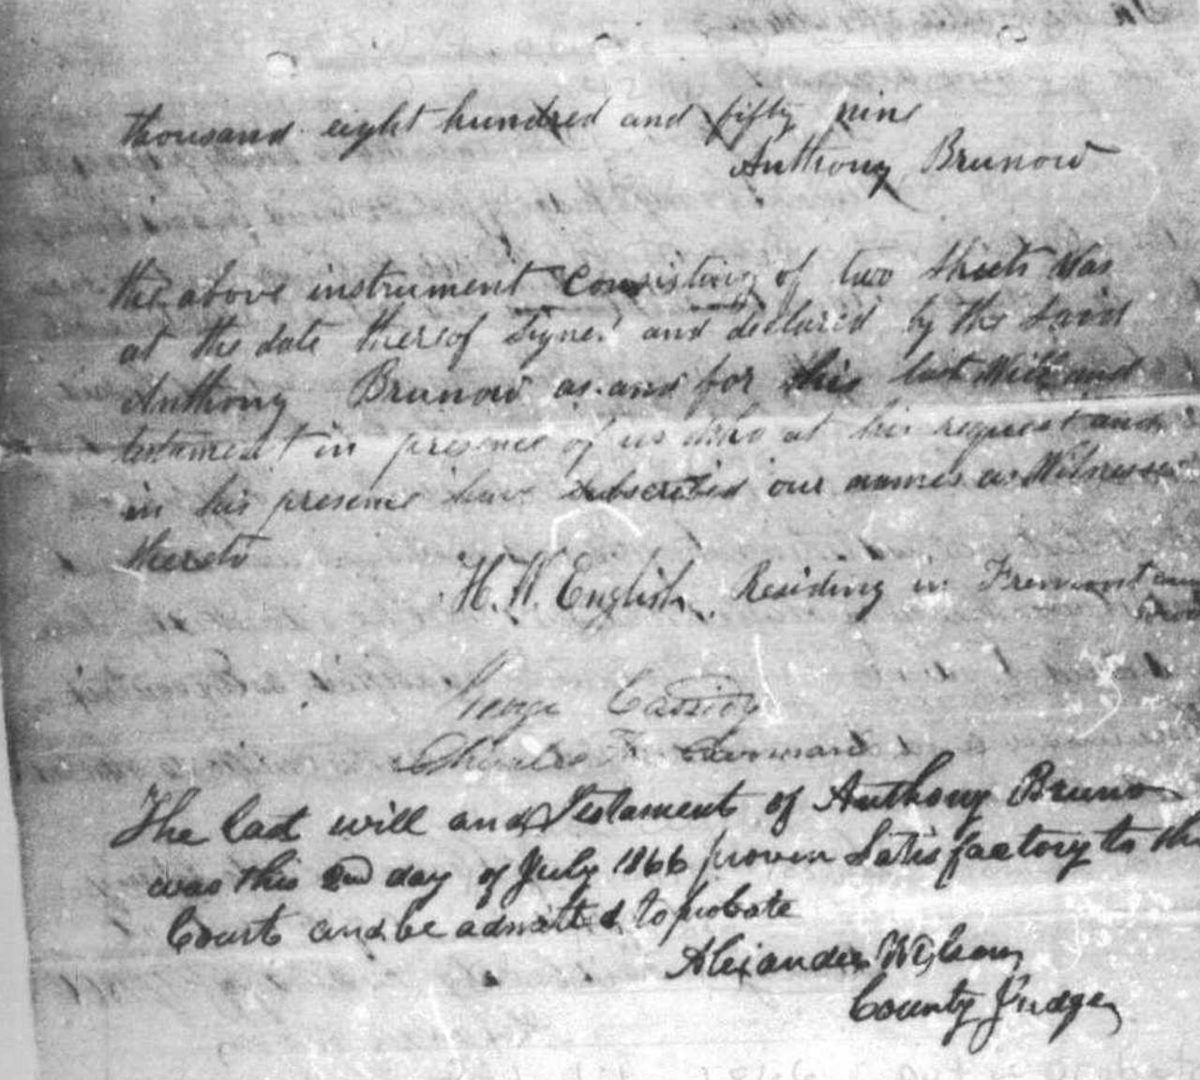 thousand eight hundred and fifty nine
Anthony Brunow
the above instrument Consisting of two Sheets Was
at the date thereof Signed and declared by the Said
Anthony Brunow as and for this last Will and
testament in presence of us Who at his request and
in his presence have subscribed our names as Witnesses
thereto
H. W. English Residing in Fremont
George Cassidy
Charles
The last will and Testament of Anthony Bruno
was this 2nd day of July 1866 proven Satisfactory to the
Court and be admitted to probate
Alexander Wilson
County Judge